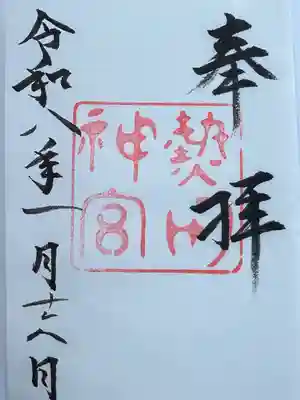 奉拝
熱田神宮
令和八年一月十六日